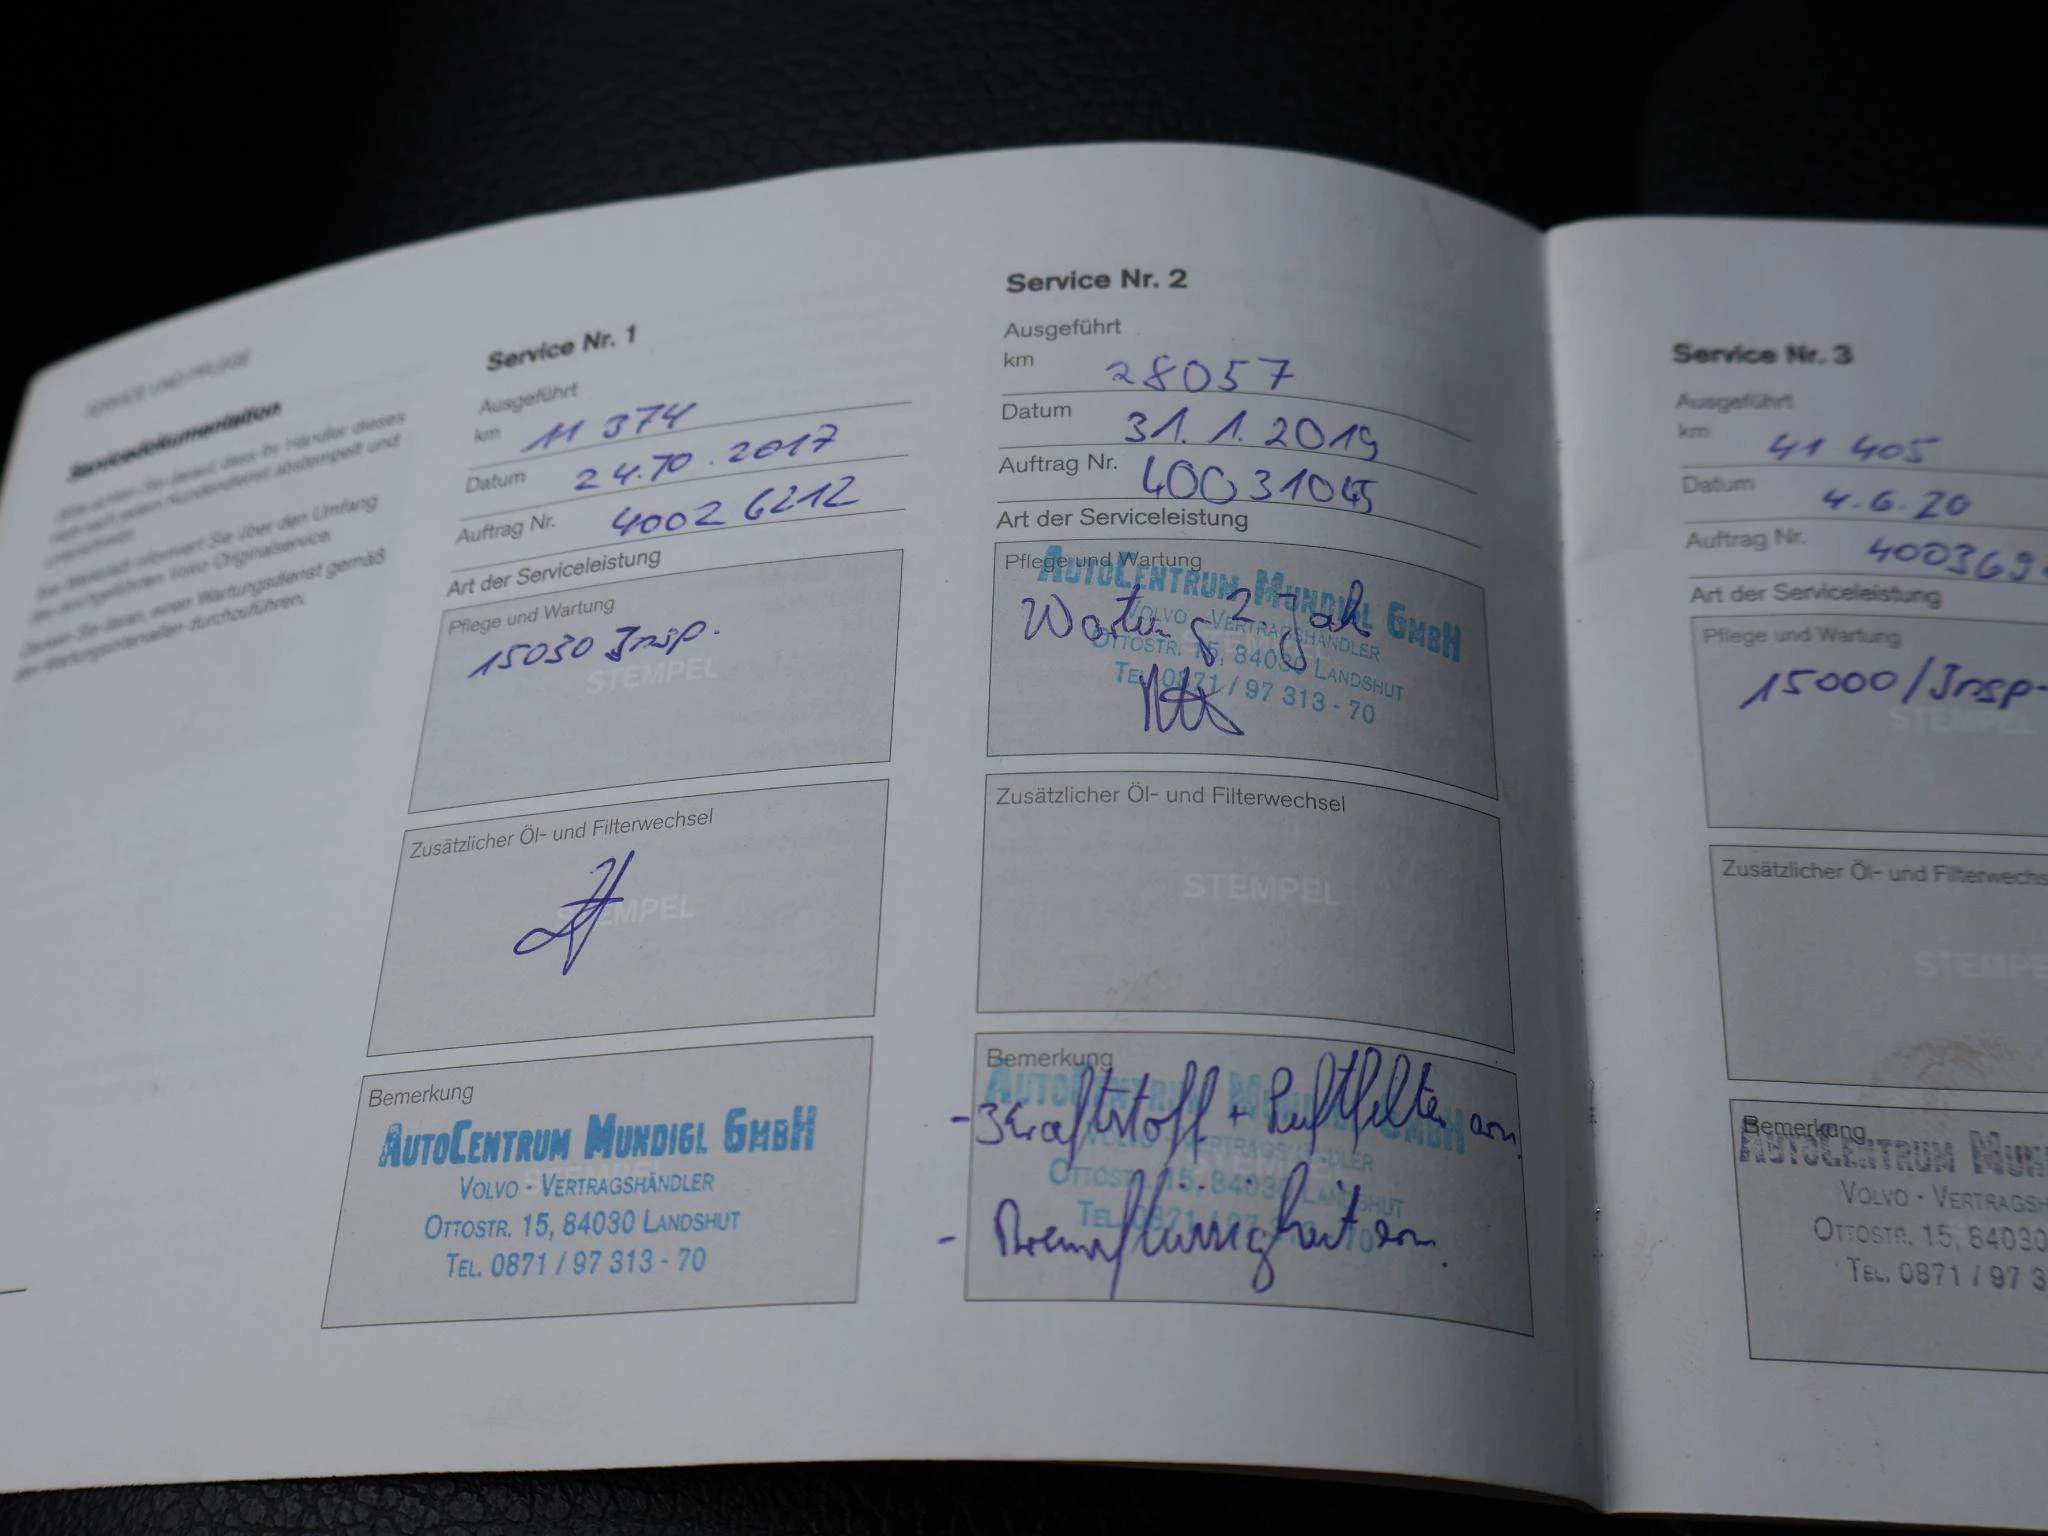 SERVICE UND PFLEGE
Servicedokumentation
Bitte achten Sie darauf, dass Ihr Händler dieses
Heft nach jedem Kundendienst abstempelt und
unterschreibt.
Ihre Werkstatt informiert Sie über den Umfang
des durchgeführten Volvo Originalservice.
Denken Sie daran, einen Wartungsdienst gemäß
den Wartungsintervallen durchzuführen.
Service Nr. 1
Ausgeführt
km 11 374
Datum 24.10.2017
Auftrag Nr. 40026212
Art der Serviceleistung
Pflege und Wartung
15030 Insp.
STEMPEL
Zusätzlicher Öl- und Filterwechsel
STEMPEL
Bemerkung
AUTOCENTRUM MUNDIGL GMBH
VOLVO - VERTRAGSHÄNDLER
OTTOSTR. 15, 84030 LANDSHUT
TEL. 0871 / 97 313 - 70
Service Nr. 2
Ausgeführt
km 28057
Datum 31.1.2019
Auftrag Nr. 40031045
Art der Serviceleistung
Pflege und Wartung
AUTOCENTRUM MUNDIGL GMBH
Wartung 2. Jah
VOLVO - VERTRAGSHÄNDLER
OTTOSTR. 15, 84030 LANDSHUT
TEL. 0871 / 97 313 - 70
Zusätzlicher Öl- und Filterwechsel
STEMPEL
Bemerkung
AUTOCENTRUM MUNDIGL GMBH
- Kraftstoff + Luftfilter ern.
VOLVO - VERTRAGSHÄNDLER
OTTOSTR. 15, 84030 LANDSHUT
TEL. 0871 / 97 313 - 70
- Bremsflüssigkeit ern.
Service Nr. 3
Ausgeführt
km 41 405
Datum 4.6.20
Auftrag Nr. 400369
Art der Serviceleistung
Pflege und Wartung
15000/Insp-
STEMPEL
Zusätzlicher Öl- und Filterwechs
STEMPE
Bemerkung
AUTOCENTRUM MUN
VOLVO - VERTRAGSH
OTTOSTR. 15, 84030
TEL. 0871 / 97 3